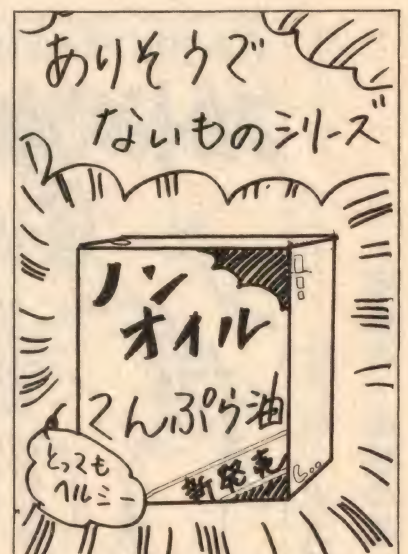 ありそうで
ないものシリーズ
ノン
オイル
てんぷら油
新発売
とっても
ヘルシー